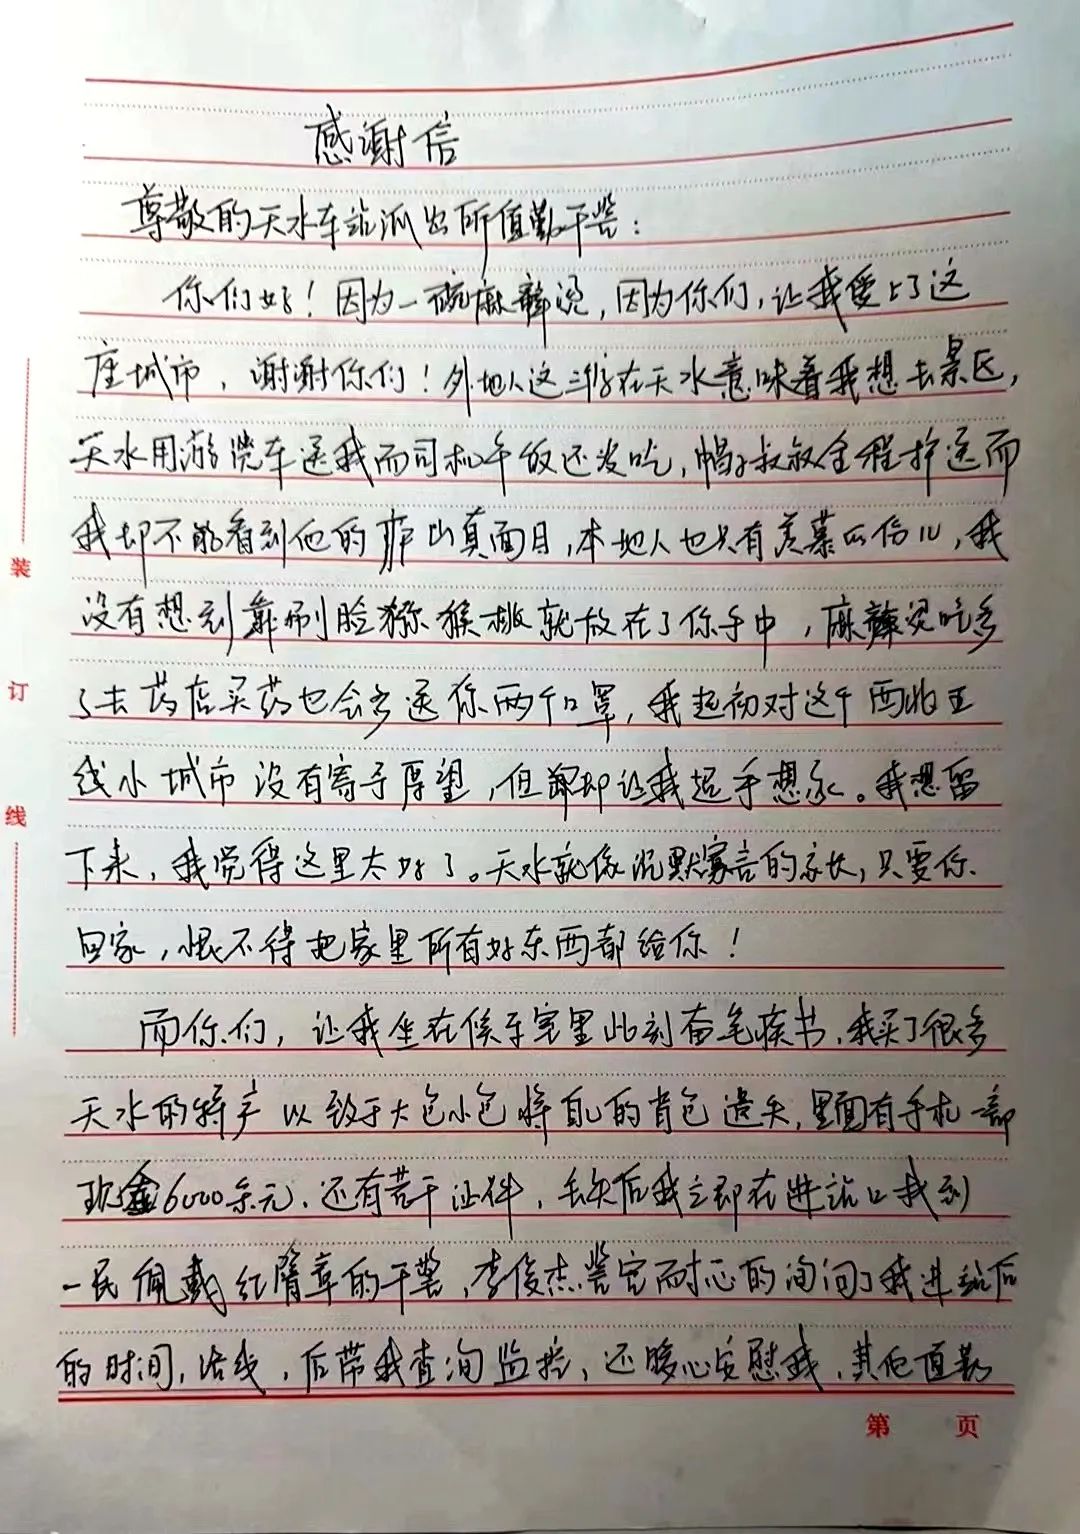 感谢信
尊敬的天水车站派出所值勤干警：
你们好！因为一碗麻辣烫，因为你们，让我爱上了这
座城市，谢谢你们！外地人这三个字在天水意味着我想去景区，
天水用游览车送我而司机午饭还没吃，帽子叔叔全程护送而
我却不能看到他的庐山真面目，本地人也只有羡慕的份儿，我
没有想到靠刷脸猕猴桃就放在了你手中，麻辣烫吃多
了去药店买药也会多送你两个口罩，我起初对这个西北五
线小城市没有寄予厚望，但却让我起手想永。我想留
下来，我觉得这里太好了。天水就像沉默寡言的家长，只要你
回家，恨不得把家里所有好东西都给你！
而你们，让我坐在候车室里此刻奋笔疾书，我买了很多
天水的特产以致于大包小包将自己的背包遗失，里面有手机一部
现金6000余元、还有若干证件，丢失后我立即在进站口找到
一民佩戴红臂章的干警，李俊杰警官耐心的询问了我进站后
的时间，路线，后带我查询监控，还暖心安慰我，其他值勤
装
订
线
第 页